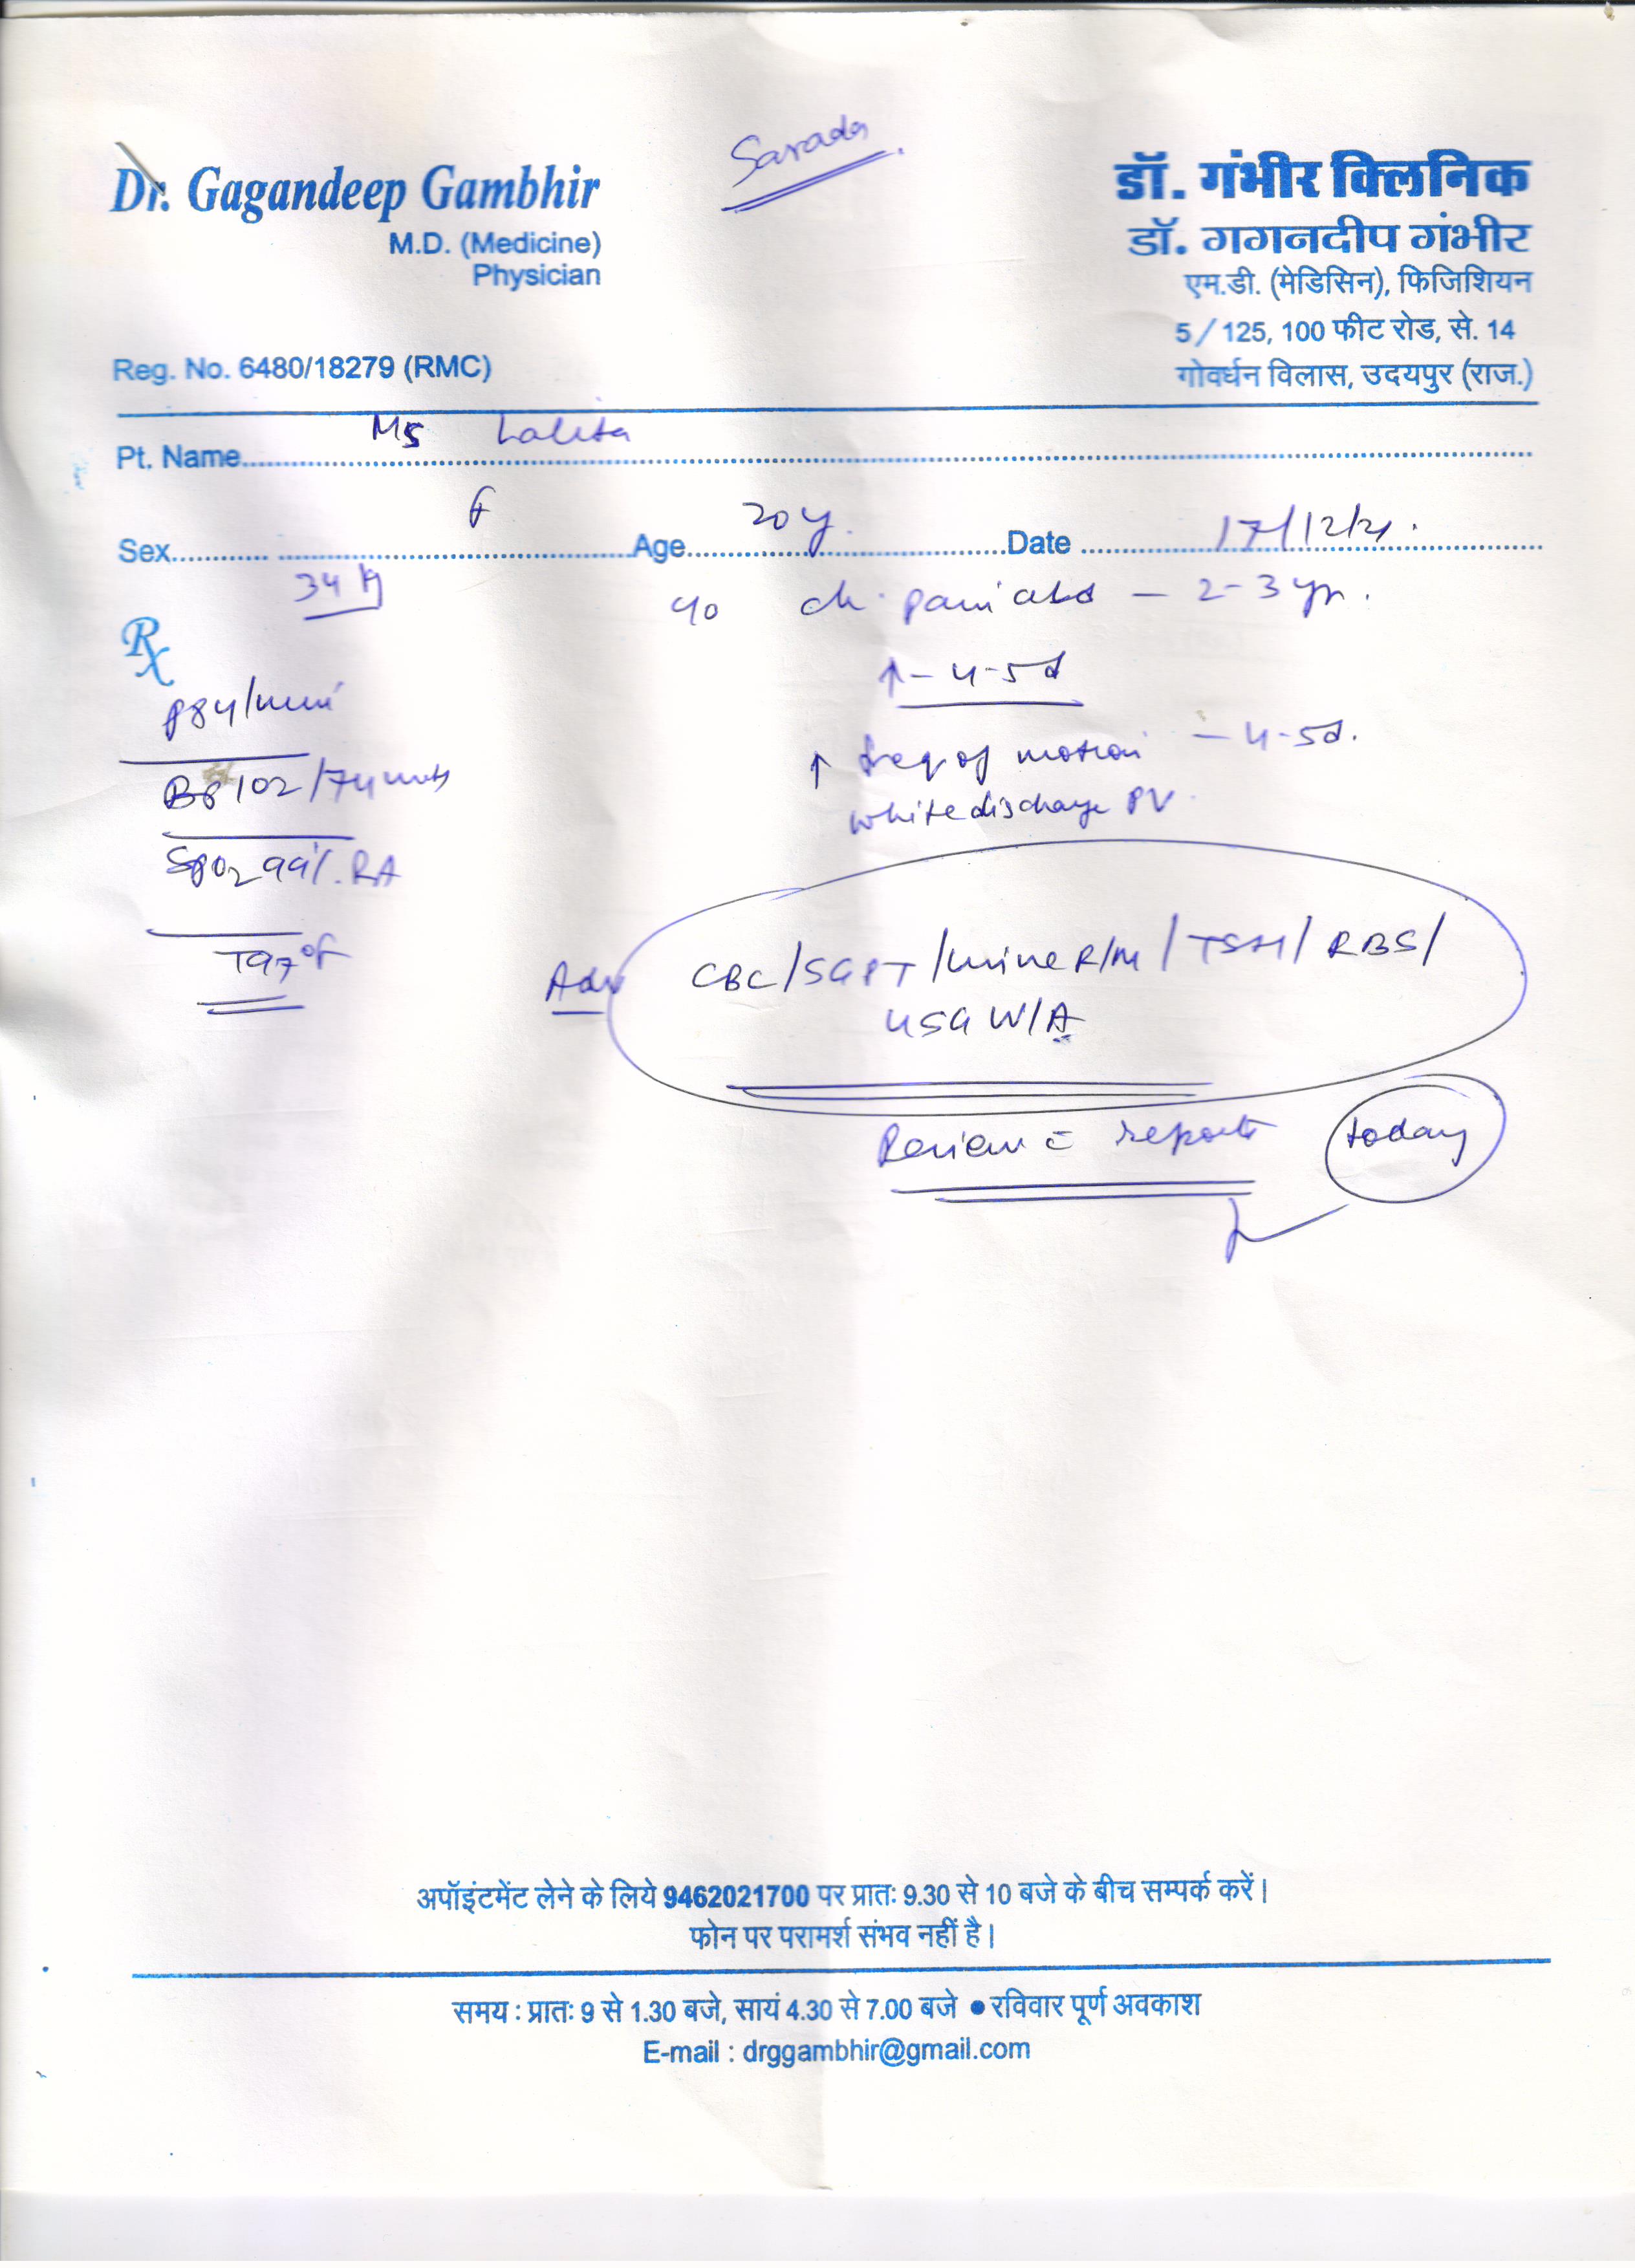 Sarada
Dr. Gagandeep Gambhir
M.D. (Medicine)
Physician
Reg. No. 6480/18279 (RMC)
डॉ. गंभीर क्लिनिक
डॉ. गगनदीप गंभीर
एम.डी. (मेडिसिन), फिजिशियन
5/125, 100 फीट रोड, से. 14
गोवर्धन विलास, उदयपुर (राज.)
Pt. Name Ms Lalita
Sex F Age 20y. Date 17/12/21.
34 kg
Rx
c/o ch. pain abd – 2-3 yr.
↑ – 4-5d
↑ freq of motion – 4-5d.
white discharge PV
P84/min
BP 102/74
SpO2 99%. RA
T97°F
Adv CBC/SGPT/Urine R/M/TSH/RBS/
USG W/A
Review c̄ reports today
अपॉइंटमेंट लेने के लिये 9462021700 पर प्रातः 9.30 से 10 बजे के बीच सम्पर्क करें।
फोन पर परामर्श संभव नहीं है।
समय : प्रातः 9 से 1.30 बजे, सायं 4.30 से 7.00 बजे ● रविवार पूर्ण अवकाश
E-mail : drggambhir@gmail.com